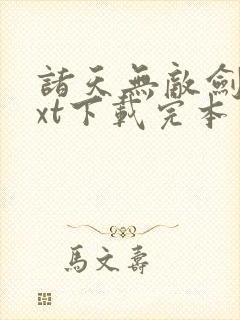 諸天無敵劍
xt下載完本
馬文壽